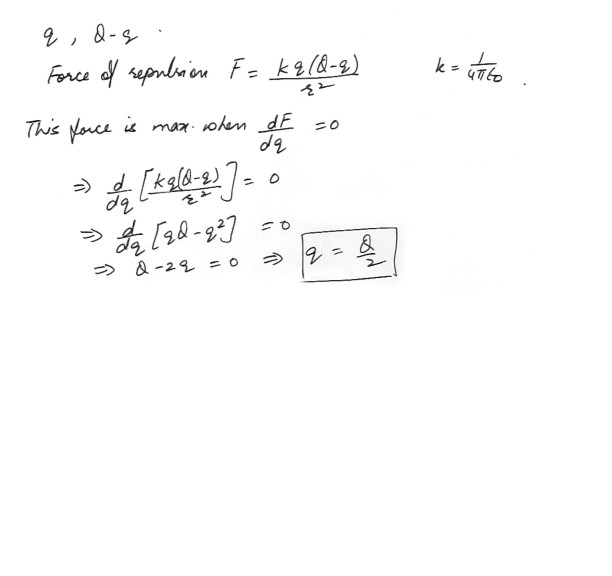 q , Q-q .
Force of repulsion F = kq(Q-q)/r² k = 1/4πε0 .
This force is max. when dF/dq = 0
⇒ d/dq [kq(Q-q)/r²] = 0
⇒ d/dq [qQ-q²] = 0
⇒ Q-2q = 0 ⇒ q = Q/2